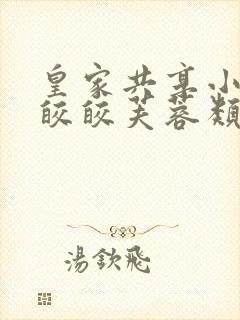 皇家共享小
皎皎芙蓉類
湯欽飛